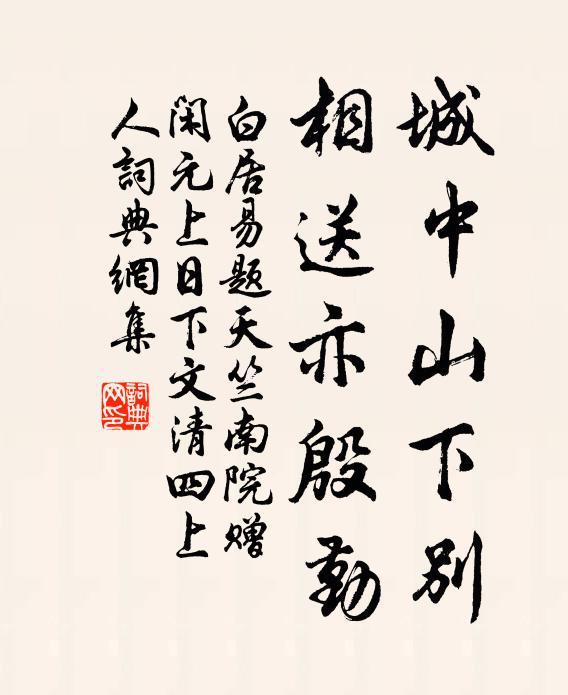 城中山下别
相送亦殷勤
白居易题天竺南院赠
闲元上日下文清四上
人詞典網集
詞典網印